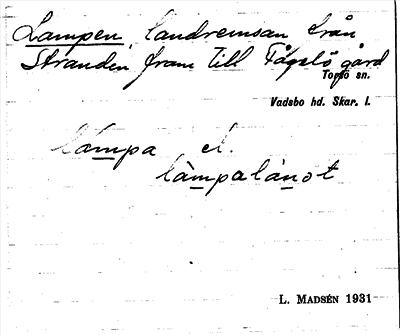 Lampen, landremsan från
Stranden fram till Fågelö gård
Torsö sn.
Vadsbo hd. Skar. l.
lampa el.
làmpalánot
L. MADSÉN 1931